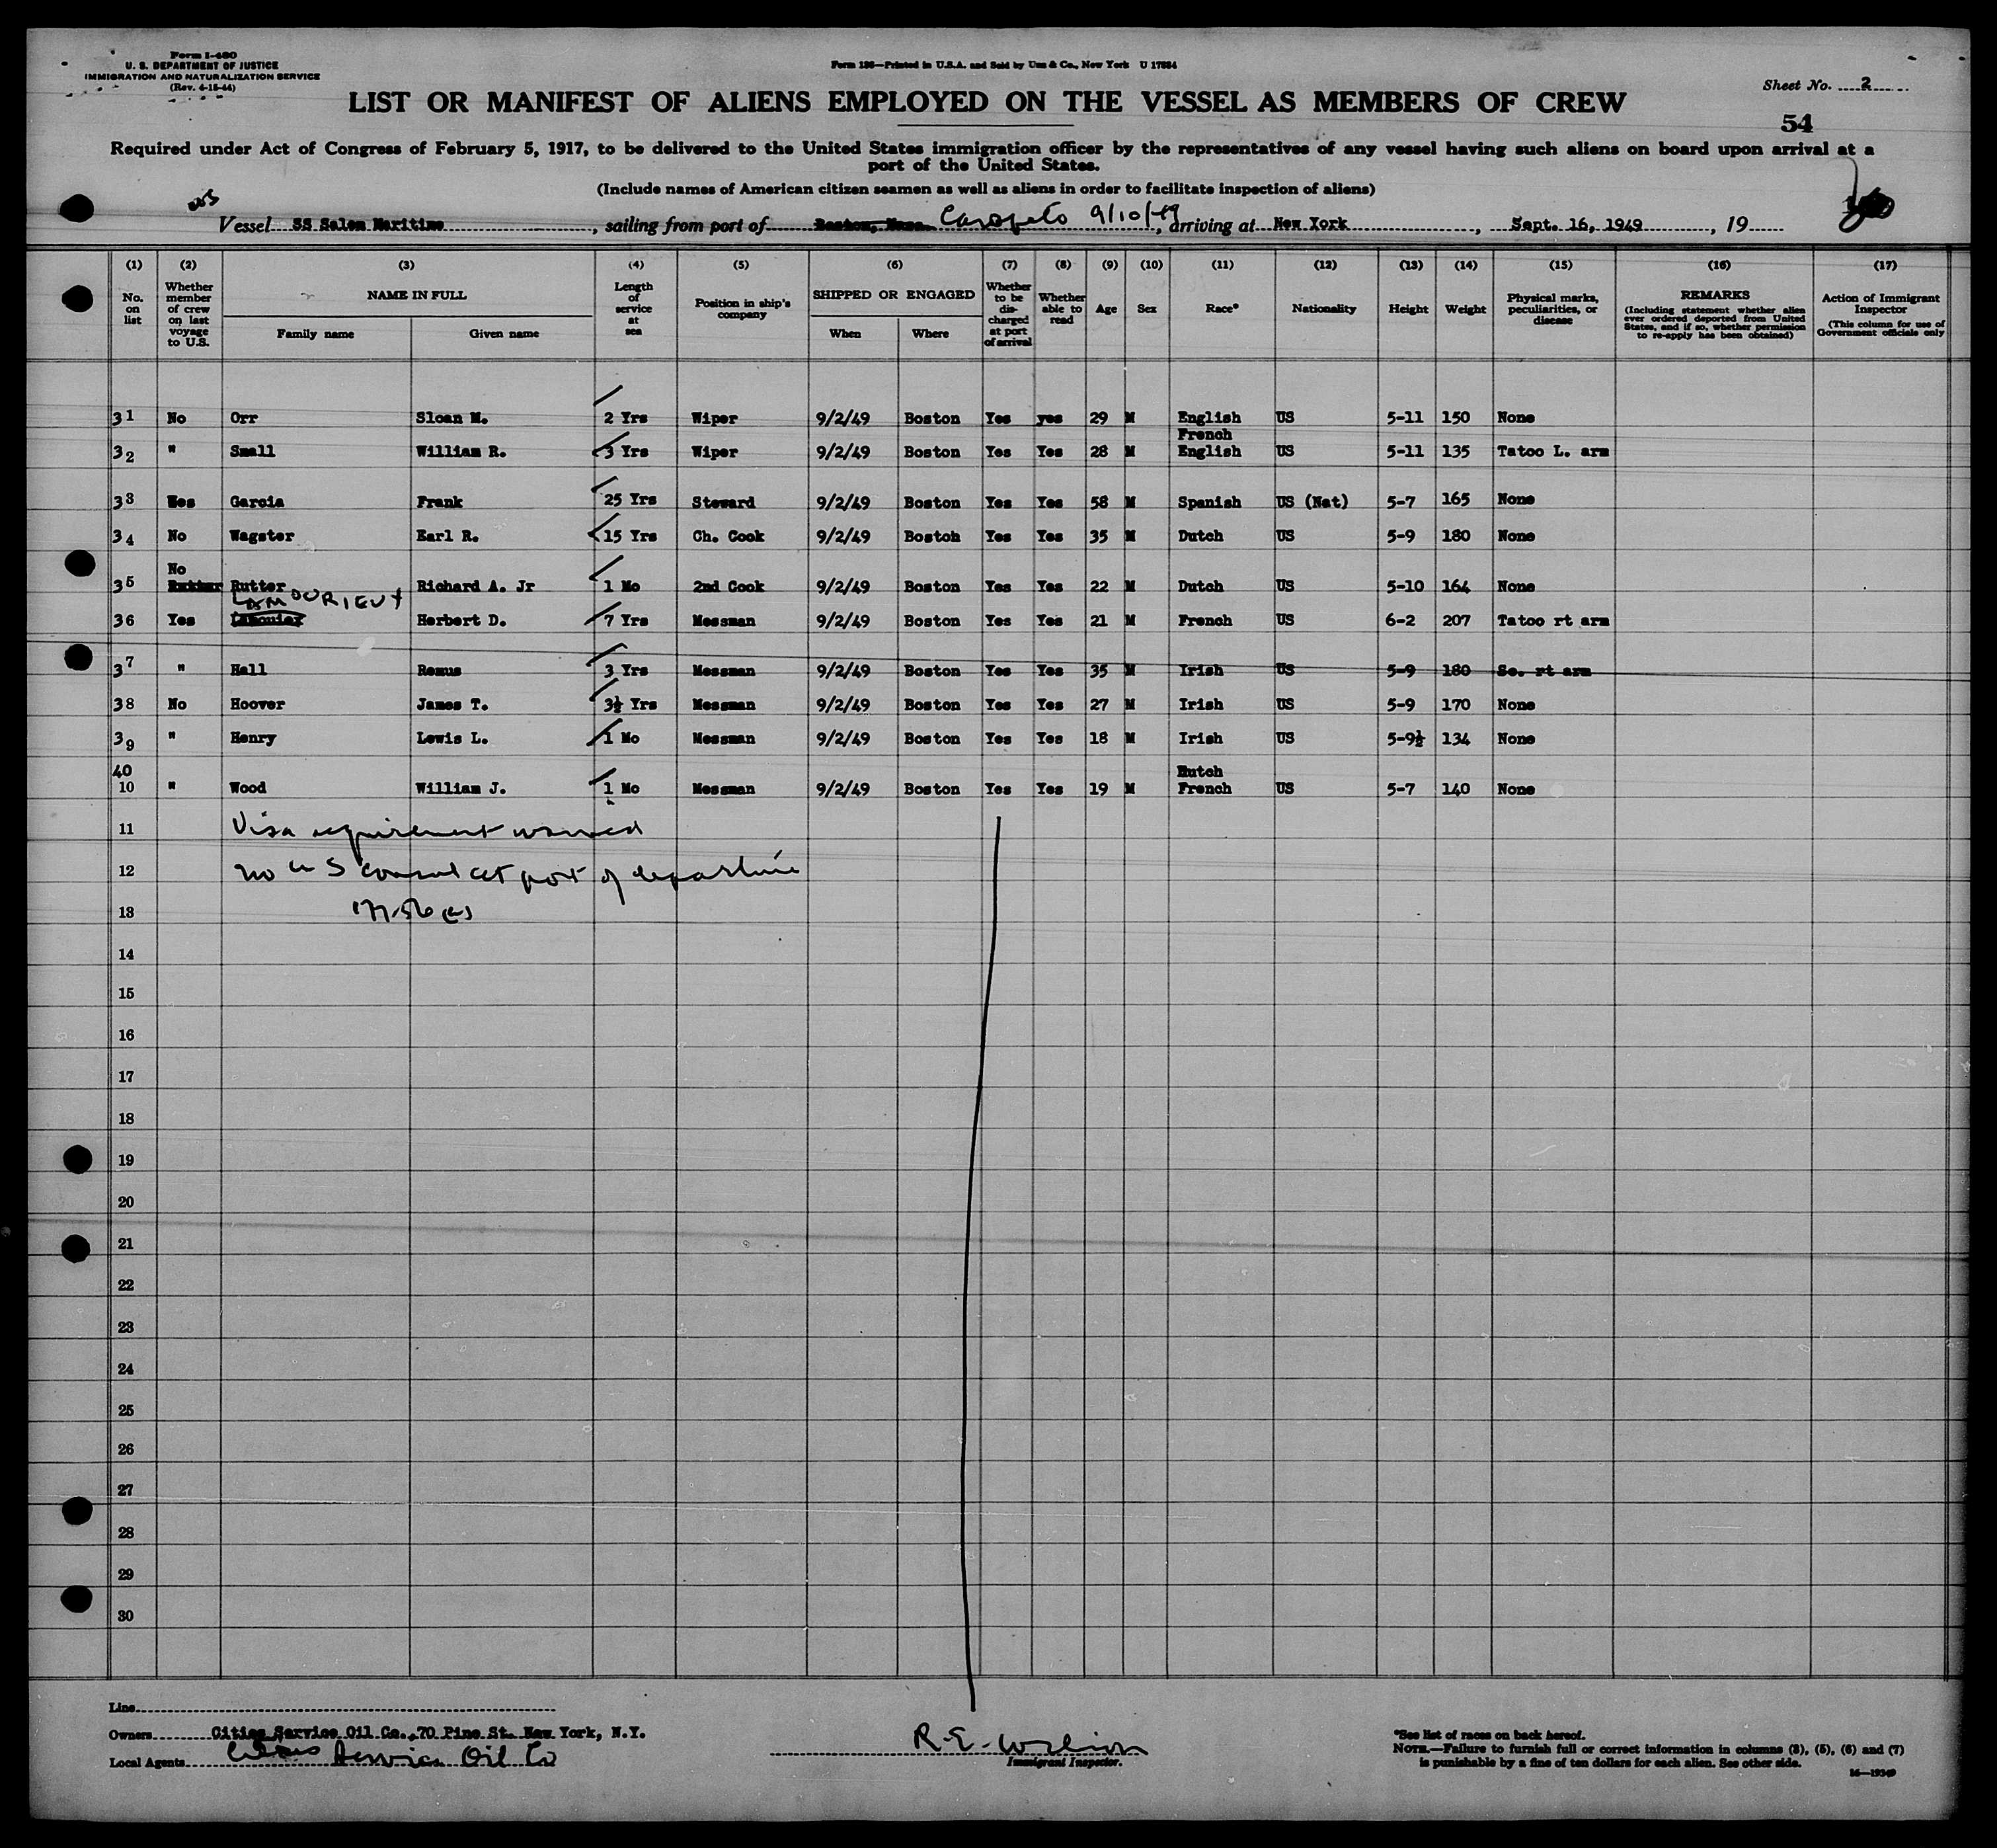 Form I-480
U. S. DEPARTMENT OF JUSTICE
IMMIGRATION AND NATURALIZATION SERVICE
(Rev. 4-15-44)
Form 186—Printed in U.S.A. and Sold by Unz & Co., New York U 17884
Sheet No. 2
LIST OR MANIFEST OF ALIENS EMPLOYED ON THE VESSEL AS MEMBERS OF CREW
54
Required under Act of Congress of February 5, 1917, to be delivered to the United States immigration officer by the representatives of any vessel having such aliens on board upon arrival at a
port of the United States.
(Include names of American citizen seamen as well as aliens in order to facilitate inspection of aliens)
Vessel SS Salem Maritime, sailing from port of Boston, Mass. Caropito 9/10/49, arriving at New York, Sept. 16, 1949, 19
(1) (2) (3) (4) (5) (6) (7) (8) (9) (10) (11) (12) (13) (14) (15) (16) (17)
No. on list
Whether member of crew on last voyage to U.S.
NAME IN FULL
Family name Given name
Length of service at sea
Position in ship's company
SHIPPED OR ENGAGED
When Where
Whether to be discharged at port of arrival
Whether able to read
Age
Sex
Race*
Nationality
Height
Weight
Physical marks, peculiarities, or disease
REMARKS
(Including statement whether alien ever ordered deported from United States, and if so, whether permission to re-apply has been obtained)
Action of Immigrant Inspector
(This column for use of Government officials only
31 No Orr Sloan M. 2 Yrs Wiper 9/2/49 Boston Yes yes 29 M English US 5-11 150 None
French
32 " Small William R. 3 Yrs Wiper 9/2/49 Boston Yes Yes 28 M English US 5-11 135 Tatoo L. arm
33 Yes Garcia Frank 25 Yrs Steward 9/2/49 Boston Yes Yes 58 M Spanish US (Nat) 5-7 165 None
34 No Wagster Earl R. 15 Yrs Ch. Cook 9/2/49 Boston Yes Yes 35 M Dutch US 5-9 180 None
No
35 Rutter Rutter Richard A. Jr 1 Mo 2nd Cook 9/2/49 Boston Yes Yes 22 M Dutch US 5-10 164 None
LAMOURIEUX
36 Yes Herbert D. 7 Yrs Messman 9/2/49 Boston Yes Yes 21 M French US 6-2 207 Tatoo rt arm
37 " Hall Remus 3 Yrs Messman 9/2/49 Boston Yes Yes 35 M Irish US 5-9 180 Sc. rt arm
38 No Hoover James T. 3½ Yrs Messman 9/2/49 Boston Yes Yes 27 M Irish US 5-9 170 None
39 " Henry Lewis L. 1 Mo Messman 9/2/49 Boston Yes Yes 18 M Irish US 5-9½ 134 None
40 Dutch
10 " Wood William J. 1 Mo Messman 9/2/49 Boston Yes Yes 19 M French US 5-7 140 None
11 Visa requirement waived
12 no U S consul at port of departure
13
14
15
16
17
18
19
20
21
22
23
24
25
26
27
28
29
30
Line
Owners Cities Service Oil Co., 70 Pine St. New York, N.Y.
Local Agents Cities Service Oil Co
R. E. Wilson
Immigrant Inspector.
*See list of races on back hereof.
NOTE.—Failure to furnish full or correct information in columns (3), (5), (6) and (7)
is punishable by a fine of ten dollars for each alien. See other side.
16—19349